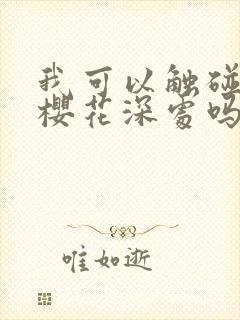 我可以触碰
樱花深处吗
唯如逝